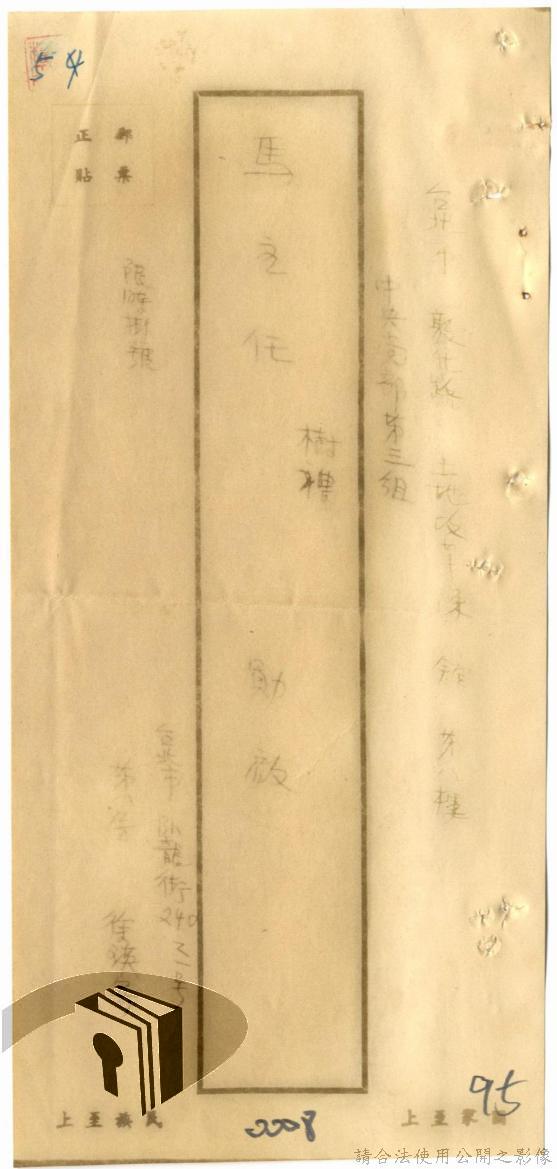 54
郵票
正貼
台北市 敦化路 土地改革 館 第八樓
中央黨部第三組
馬主任
樹禮
勛啟
限時掛號
台北市 臥龍街240之 號
第 徐
國家至上
民族至上
0008
95
請合法使用公開之影像